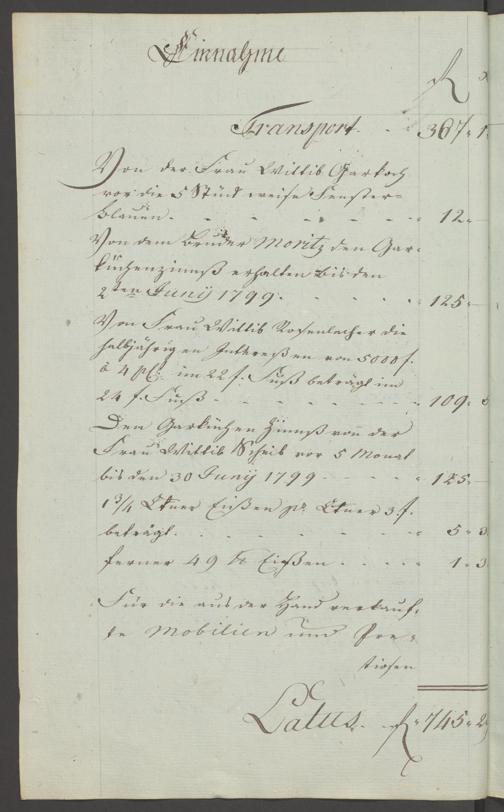 Einnahme
f
Transport. - - 367 " 1
Von der Frau Wittib Garkoch
vor die 5 Stück weise Fenster=
blauen. - - - - - - " 12 "
Von dem Bruder Moritz den Gar=
küchenzinnß erhalten bis den
2ten Juny 1799. - - - - - " 125 -
Von Frau Wittib Rosenlecher die
halbjährigen Interessen von 5000 f.
à 4 pC: im 22 f. Fuß beträgt im
24 f. Fuß - - - - - - - " 109 "
Den Garküchen Zinnß von der
Frau Wittib Scheib vor 5 Monat
bis den 30 Juny 1799 - - - - " 125 -
1 3/4 Ctner Eißen pr Ctner 3 f.
beträgt. - - - - - - - " 5 " 3
ferner 49 lb Eißen . - - - - " 1 " 3
Für die aus der Hand verkauf=
te Mobilien und Pre=
tiosen
Latus - f " 745 " 2